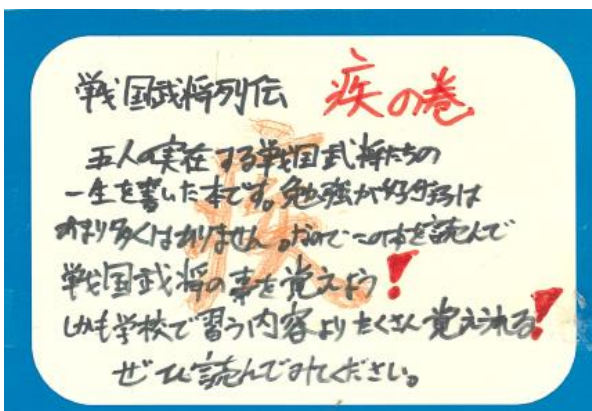 戦国武将列伝 疾の巻
五人の実在する戦国武将たちの
一生を書いた本です。勉強が好きな方は
あまり多くはありません。なのでこの本を読んで
戦国武将の事を覚えよう!
しかも学校で習う内容よりたくさん覚えられる!
ぜひ読んでみてください。
疾